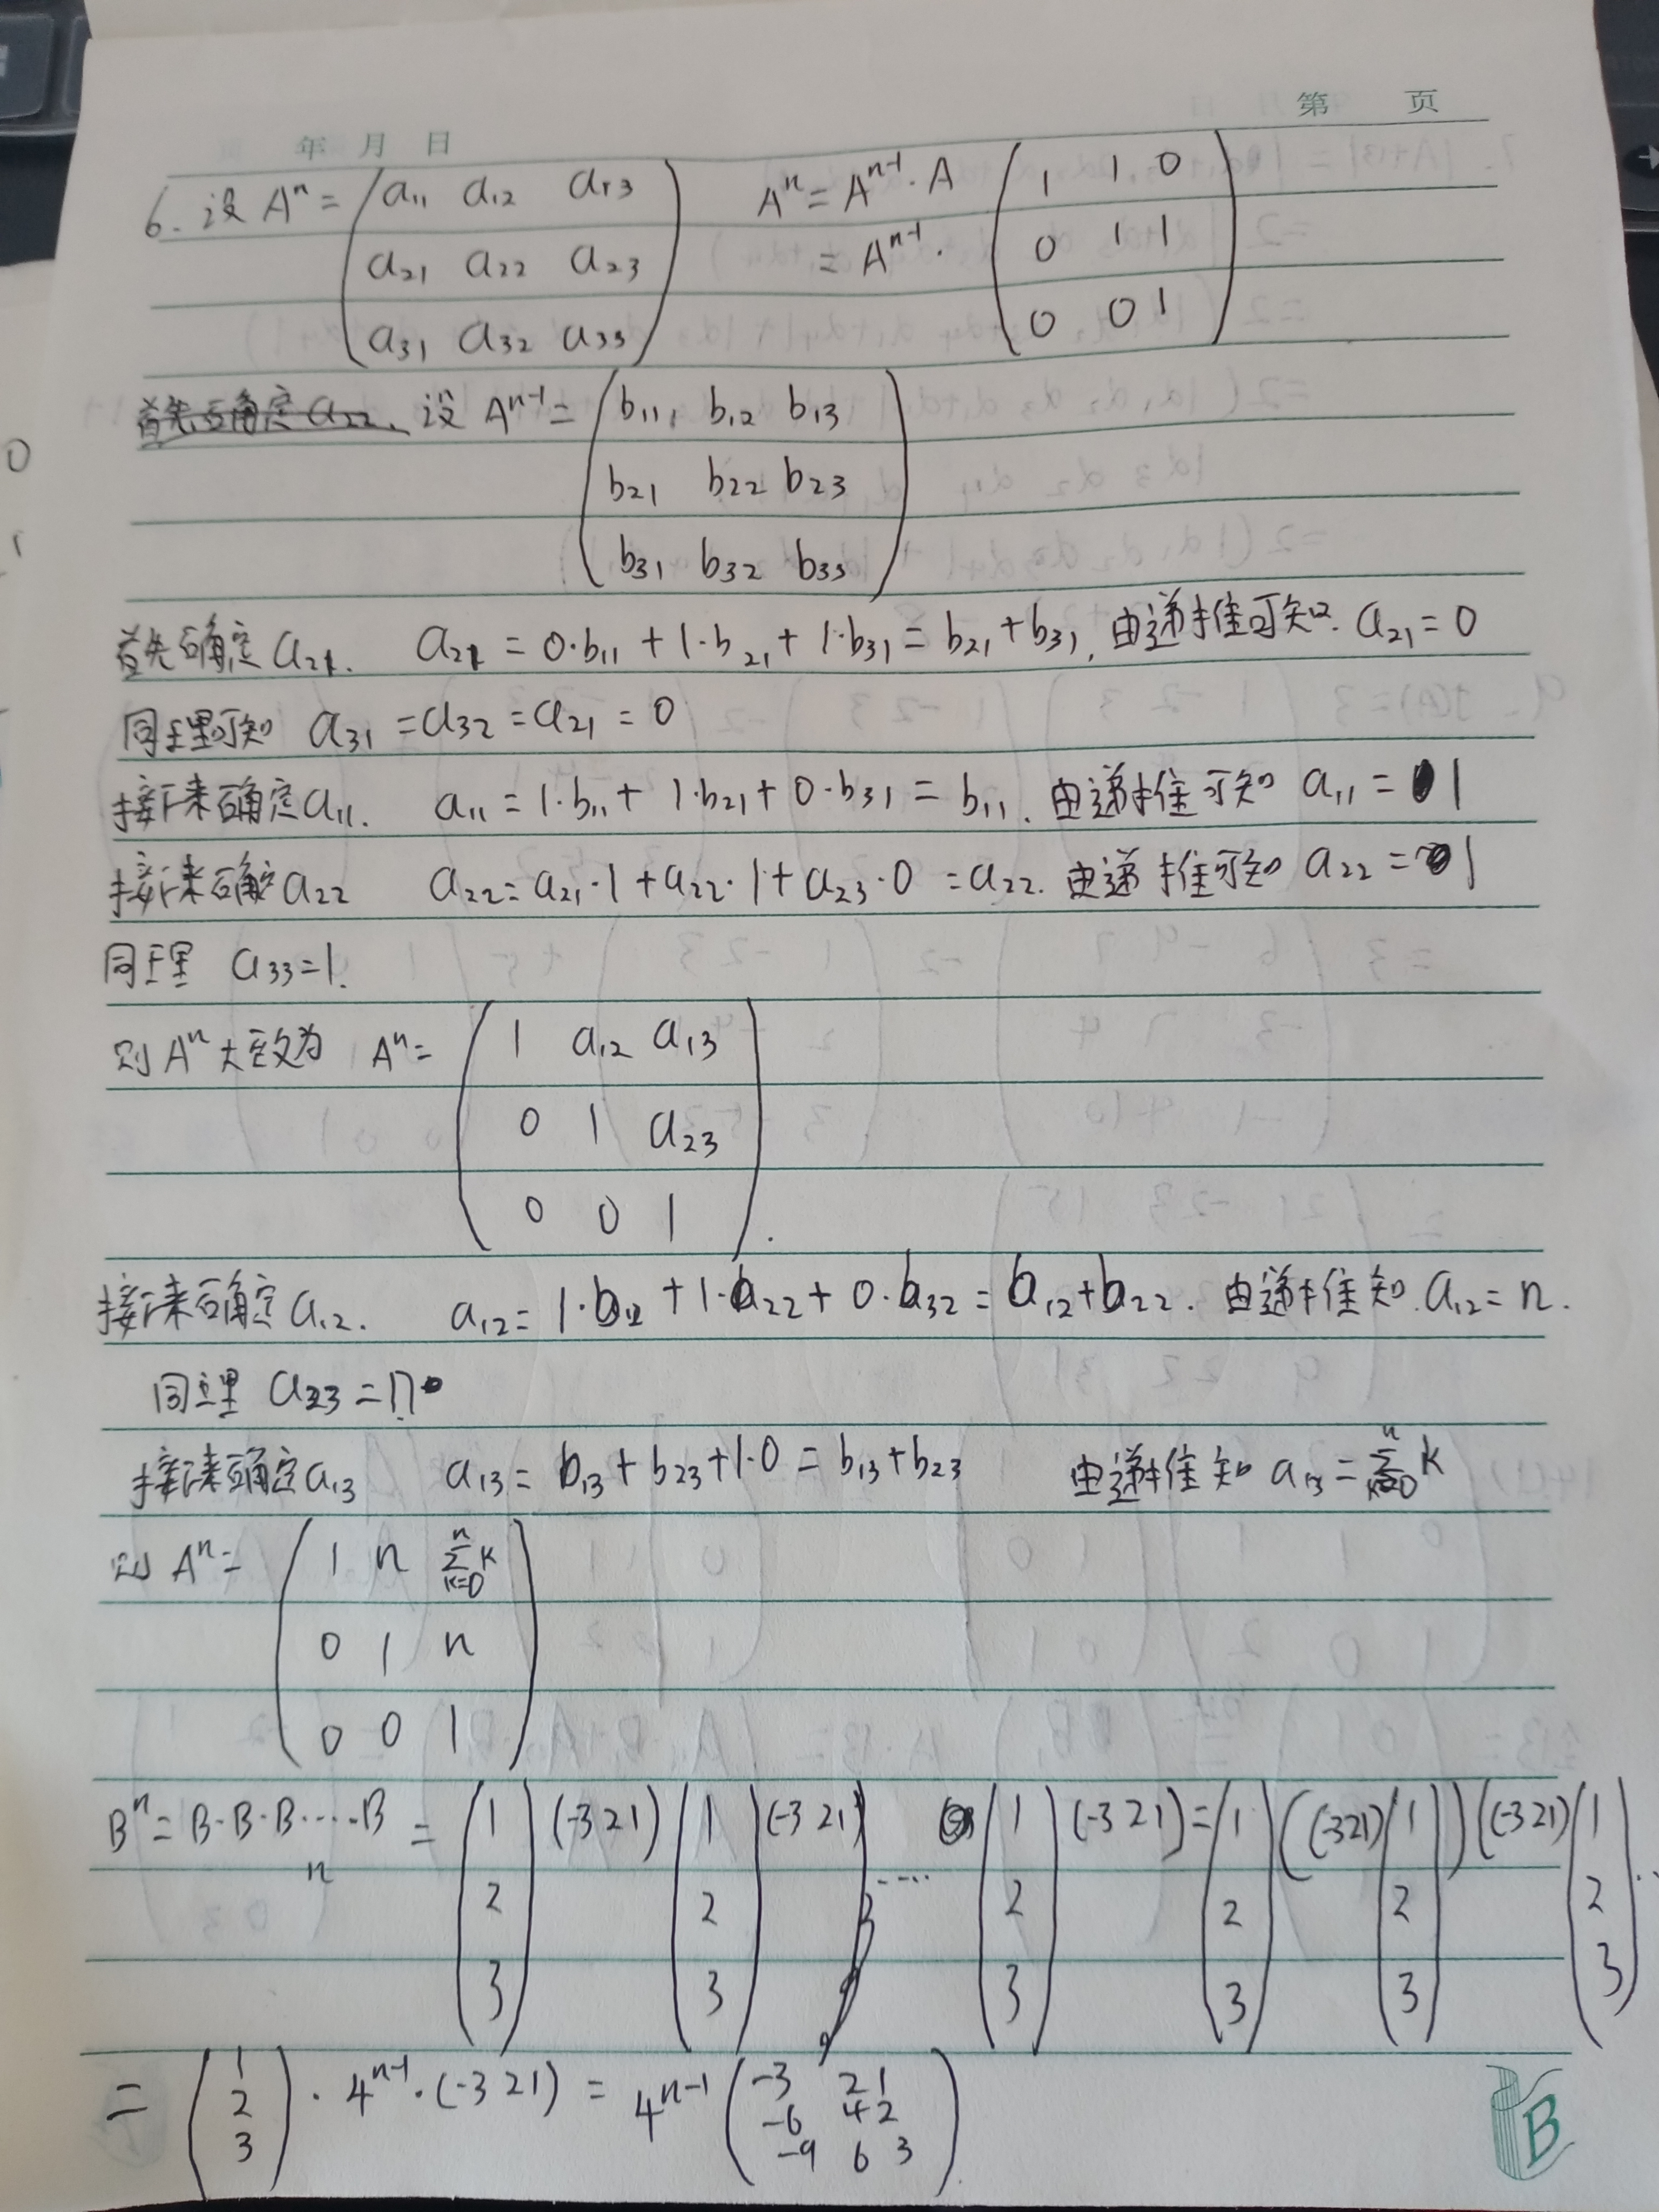 第 页
年 月 日
6. 设 Aⁿ = (a₁₁ a₁₂ a₁₃ Aⁿ = Aⁿ⁻¹·A (1 1 0
a₂₁ a₂₂ a₂₃ = Aⁿ⁻¹· 0 1 1
a₃₁ a₃₂ a₃₃) 0 0 1)
首先确定a₂₂. 设 Aⁿ⁻¹ = (b₁₁, b₁₂ b₁₃
b₂₁ b₂₂ b₂₃
b₃₁ b₃₂ b₃₃)
首先确定a₂₁. a₂₁ = 0·b₁₁ + 1·b₂₁ + 1·b₃₁ = b₂₁ + b₃₁, 由递推可知. a₂₁ = 0
同理可知 a₃₁ = a₃₂ = a₂₁ = 0
接下来确定a₁₁. a₁₁ = 1·b₁₁ + 1·b₂₁ + 0·b₃₁ = b₁₁. 由递推可知 a₁₁ = 1
接下来确定a₂₂ a₂₂ = a₂₁·1 + a₂₂·1 + a₂₃·0 = a₂₂. 由递推可知 a₂₂ = 1
同理 a₃₃ = 1.
则 Aⁿ 大致为 Aⁿ = (1 a₁₂ a₁₃
0 1 a₂₃
0 0 1).
接下来确定a₁₂. a₁₂ = 1·b₁₂ + 1·b₂₂ + 0·b₃₂ = b₁₂ + b₂₂. 由递推知. a₁₂ = n.
同理 a₂₃ = n
接下来确定a₁₃ a₁₃ = b₁₃ + b₂₃ + 1·0 = b₁₃ + b₂₃ 由递推知 a₁₃ = Σⁿₖ₌₀ k
则 Aⁿ = (1 n Σⁿₖ₌₀ k
0 1 n
0 0 1)
Bⁿ = B·B·B·····B = (1 (-3 2 1) (1 (-3 2 1) (1 (-3 2 1) = (1 ((-3 2 1) (1 )((-3 2 1) (1
n 2 2 ···· 2 2 2 2 ··
3) 3) 3) 3) 3) 3)
= (1 2 3) · 4ⁿ⁻¹ · (-3 2 1) = 4ⁿ⁻¹ (-3 2 1
-6 4 2
-9 6 3).
B